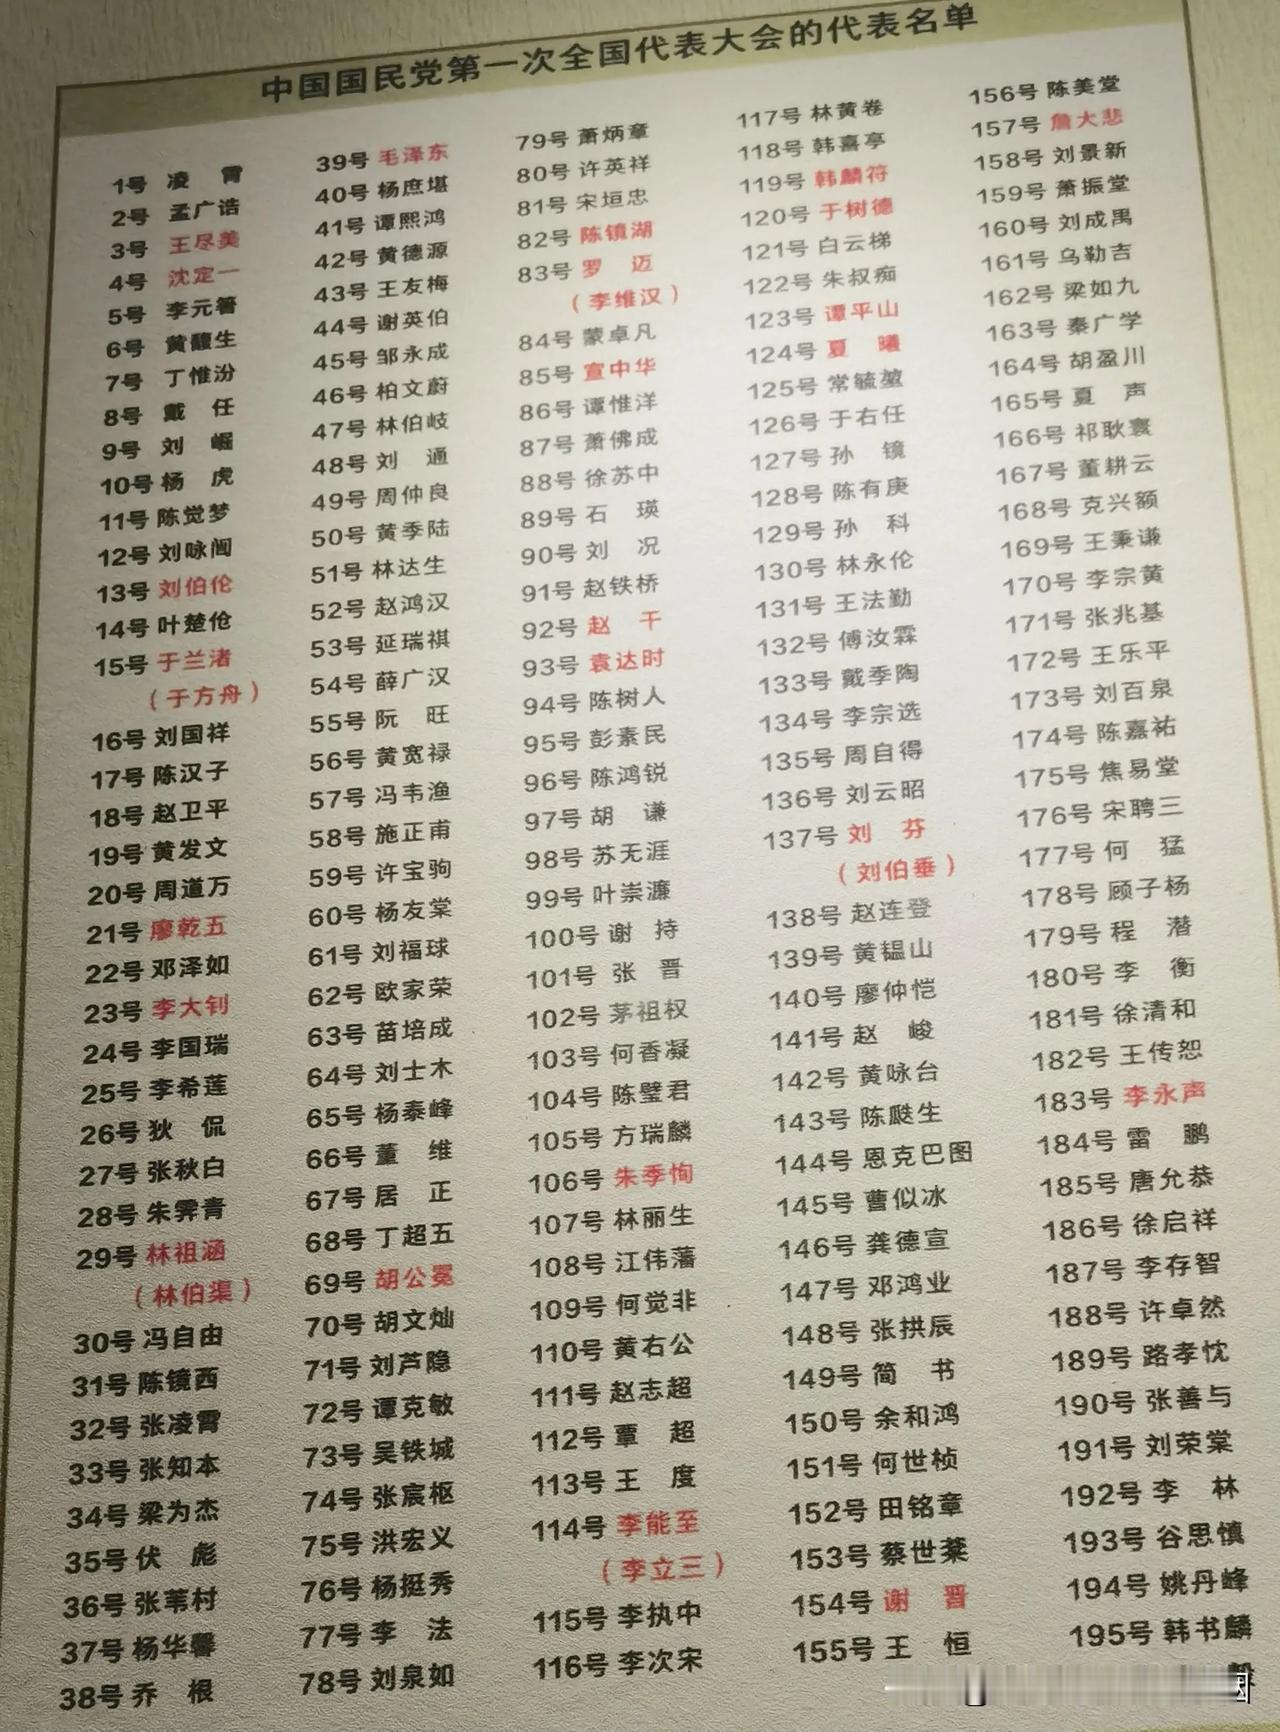 中国国民党第一次全国代表大会的代表名单
1号 凌 霄
2号 孟广浩
3号 王尽美
4号 沈定一
5号 李元箸
6号 黄馥生
7号 丁惟汾
8号 戴 任
9号 刘 崛
10号 杨 虎
11号 陈觉梦
12号 刘咏闿
13号 刘伯伦
14号 叶楚伧
15号 于兰渚
(于方舟)
16号 刘国祥
17号 陈汉子
18号 赵卫平
19号 黄发文
20号 周道万
21号 廖乾五
22号 邓泽如
23号 李大钊
24号 李国瑞
25号 李希莲
26号 狄 侃
27号 张秋白
28号 朱霁青
29号 林祖涵
(林伯渠)
30号 冯自由
31号 陈镜西
32号 张凌霄
33号 张知本
34号 梁为杰
35号 伏 彪
36号 张苇村
37号 杨华馨
38号 乔 根
39号 毛泽东
40号 杨庶堪
41号 谭熙鸿
42号 黄德源
43号 王友梅
44号 谢英伯
45号 邹永成
46号 柏文蔚
47号 林伯岐
48号 刘 通
49号 周仲良
50号 黄季陆
51号 林达生
52号 赵鸿汉
53号 延瑞祺
54号 薛广汉
55号 阮 旺
56号 黄宽禄
57号 冯韦渔
58号 施正甫
59号 许宝驹
60号 杨友棠
61号 刘福球
62号 欧家荣
63号 苗培成
64号 刘士木
65号 杨泰峰
66号 董 维
67号 居 正
68号 丁超五
69号 胡公冕
70号 胡文灿
71号 刘芦隐
72号 谭克敏
73号 吴铁城
74号 张宸枢
75号 洪宏义
76号 杨挺秀
77号 李 法
78号 刘泉如
79号 萧炳章
80号 许英祥
81号 宋垣忠
82号 陈镜湖
83号 罗 迈
(李维汉)
84号 蒙卓凡
85号 宣中华
86号 谭惟洋
87号 萧佛成
88号 徐苏中
89号 石 瑛
90号 刘 况
91号 赵铁桥
92号 赵 干
93号 袁达时
94号 陈树人
95号 彭素民
96号 陈鸿锐
97号 胡 谦
98号 苏无涯
99号 叶崇濂
100号 谢 持
101号 张 晋
102号 茅祖权
103号 何香凝
104号 陈璧君
105号 方瑞麟
106号 朱季恂
107号 林丽生
108号 江伟藩
109号 何觉非
110号 黄右公
111号 赵志超
112号 覃 超
113号 王 度
114号 李能至
(李立三)
115号 李执中
116号 李次宋
117号 林黄卷
118号 韩喜亭
119号 韩麟符
120号 于树德
121号 白云梯
122号 朱叔痴
123号 谭平山
124号 夏 曦
125号 常毓堃
126号 于右任
127号 孙 镜
128号 陈有庚
129号 孙 科
130号 林永伦
131号 王法勤
132号 傅汝霖
133号 戴季陶
134号 李宗选
135号 周自得
136号 刘云昭
137号 刘 芬
(刘伯垂)
138号 赵连登
139号 黄韫山
140号 廖仲恺
141号 赵 峻
142号 黄咏台
143号 陈飚生
144号 恩克巴图
145号 曹似冰
146号 龚德宣
147号 邓鸿业
148号 张拱辰
149号 简 书
150号 余和鸿
151号 何世桢
152号 田铭章
153号 蔡世棻
154号 谢 晋
155号 王 恒
156号 陈美堂
157号 詹大悲
158号 刘景新
159号 萧振堂
160号 刘成禺
161号 乌勒吉
162号 梁如九
163号 秦广学
164号 胡盈川
165号 夏 声
166号 祁耿寰
167号 董耕云
168号 克兴额
169号 王秉谦
170号 李宗黄
171号 张兆基
172号 王乐平
173号 刘百泉
174号 陈嘉祐
175号 焦易堂
176号 宋聘三
177号 何 猛
178号 顾子杨
179号 程 潜
180号 李 衡
181号 徐清和
182号 王传恕
183号 李永声
184号 雷 鹏
185号 唐允恭
186号 徐启祥
187号 李存智
188号 许卓然
189号 路孝忱
190号 张善与
191号 刘荣棠
192号 李 林
193号 谷思慎
194号 姚丹峰
195号 韩书麟